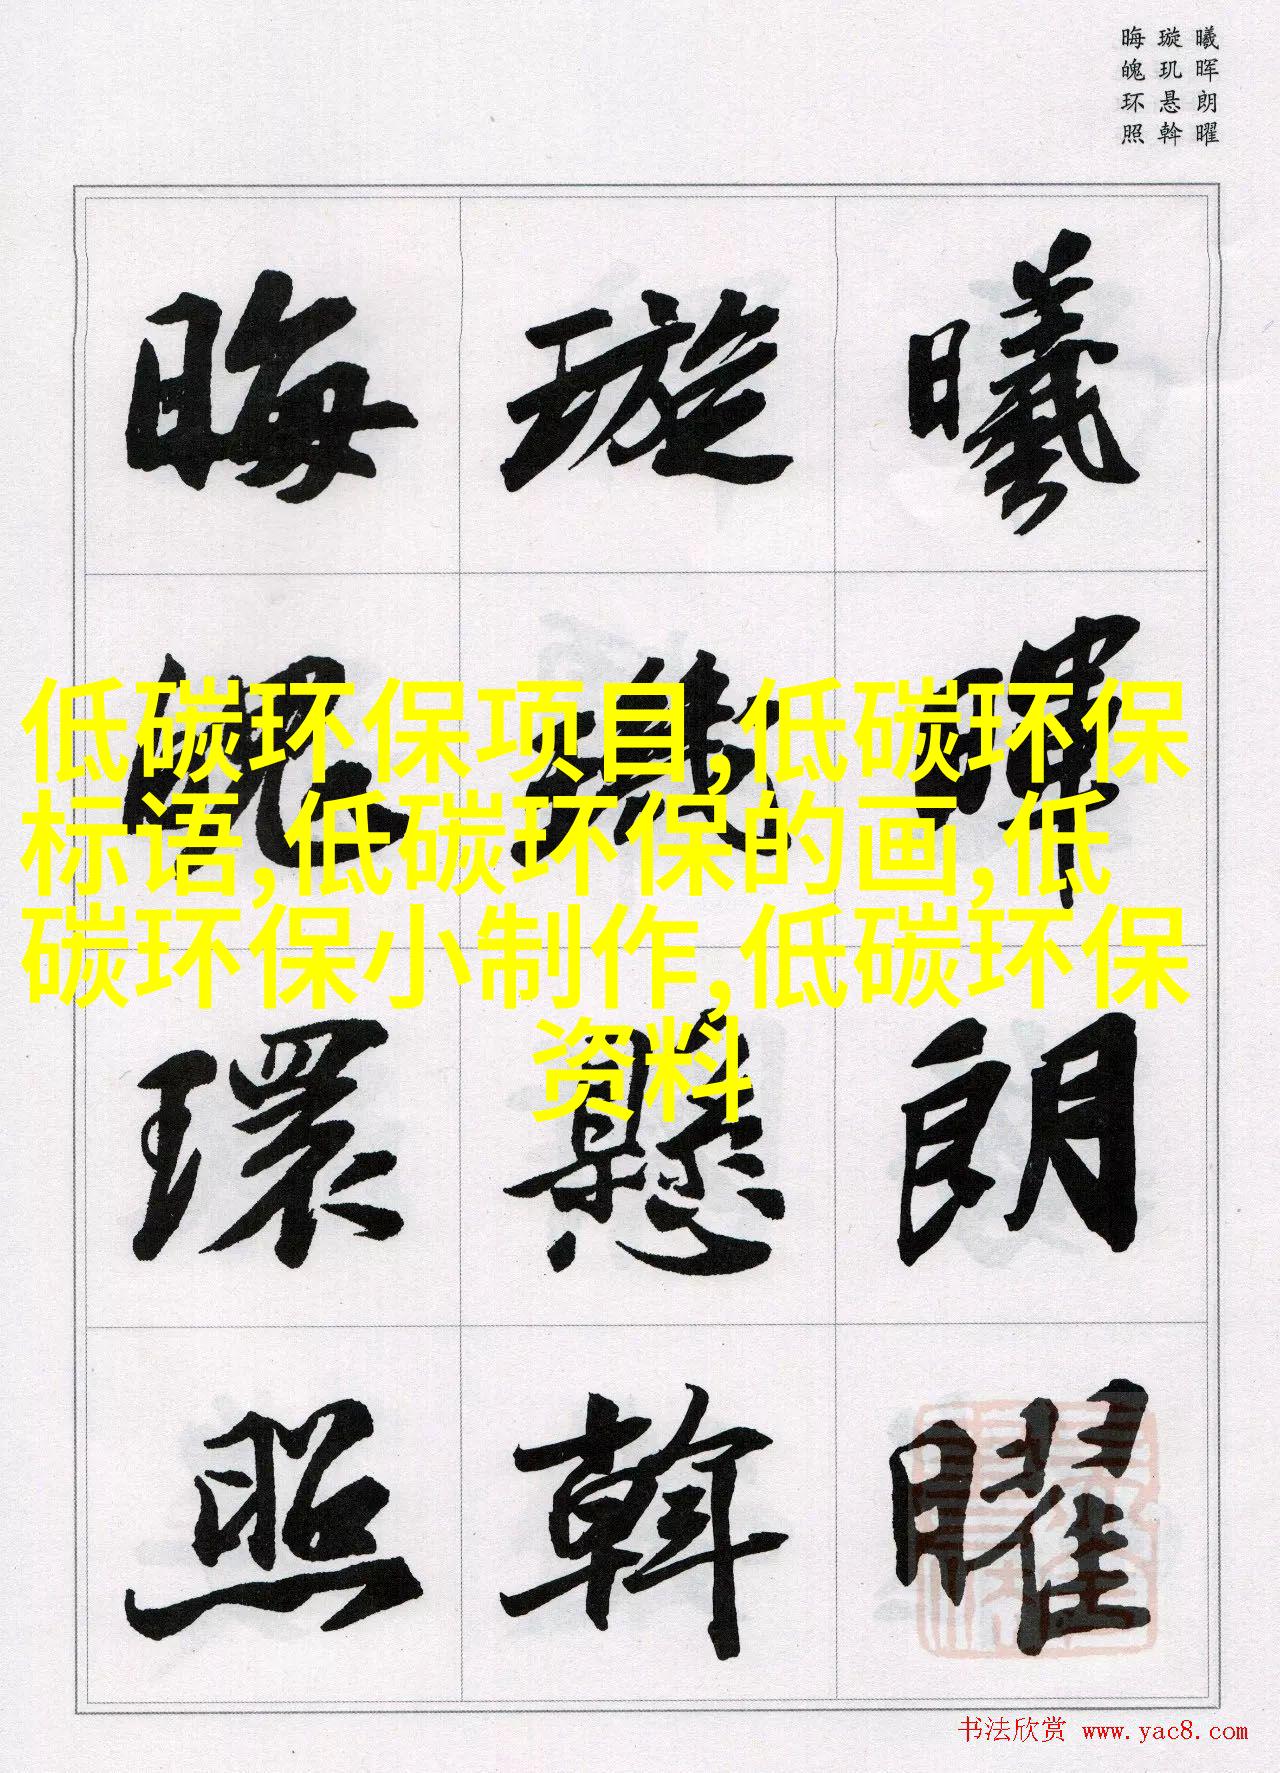 曦晖朗曜
璇玑悬斡
晦魄环照
曦暉朗曜
璇璣懸斡
晦魄環照
低碳环保项目,低碳环保
标语,低碳环保的画,低
碳环保小制作,低碳环保
资料
书法欣赏 www.yac8.com